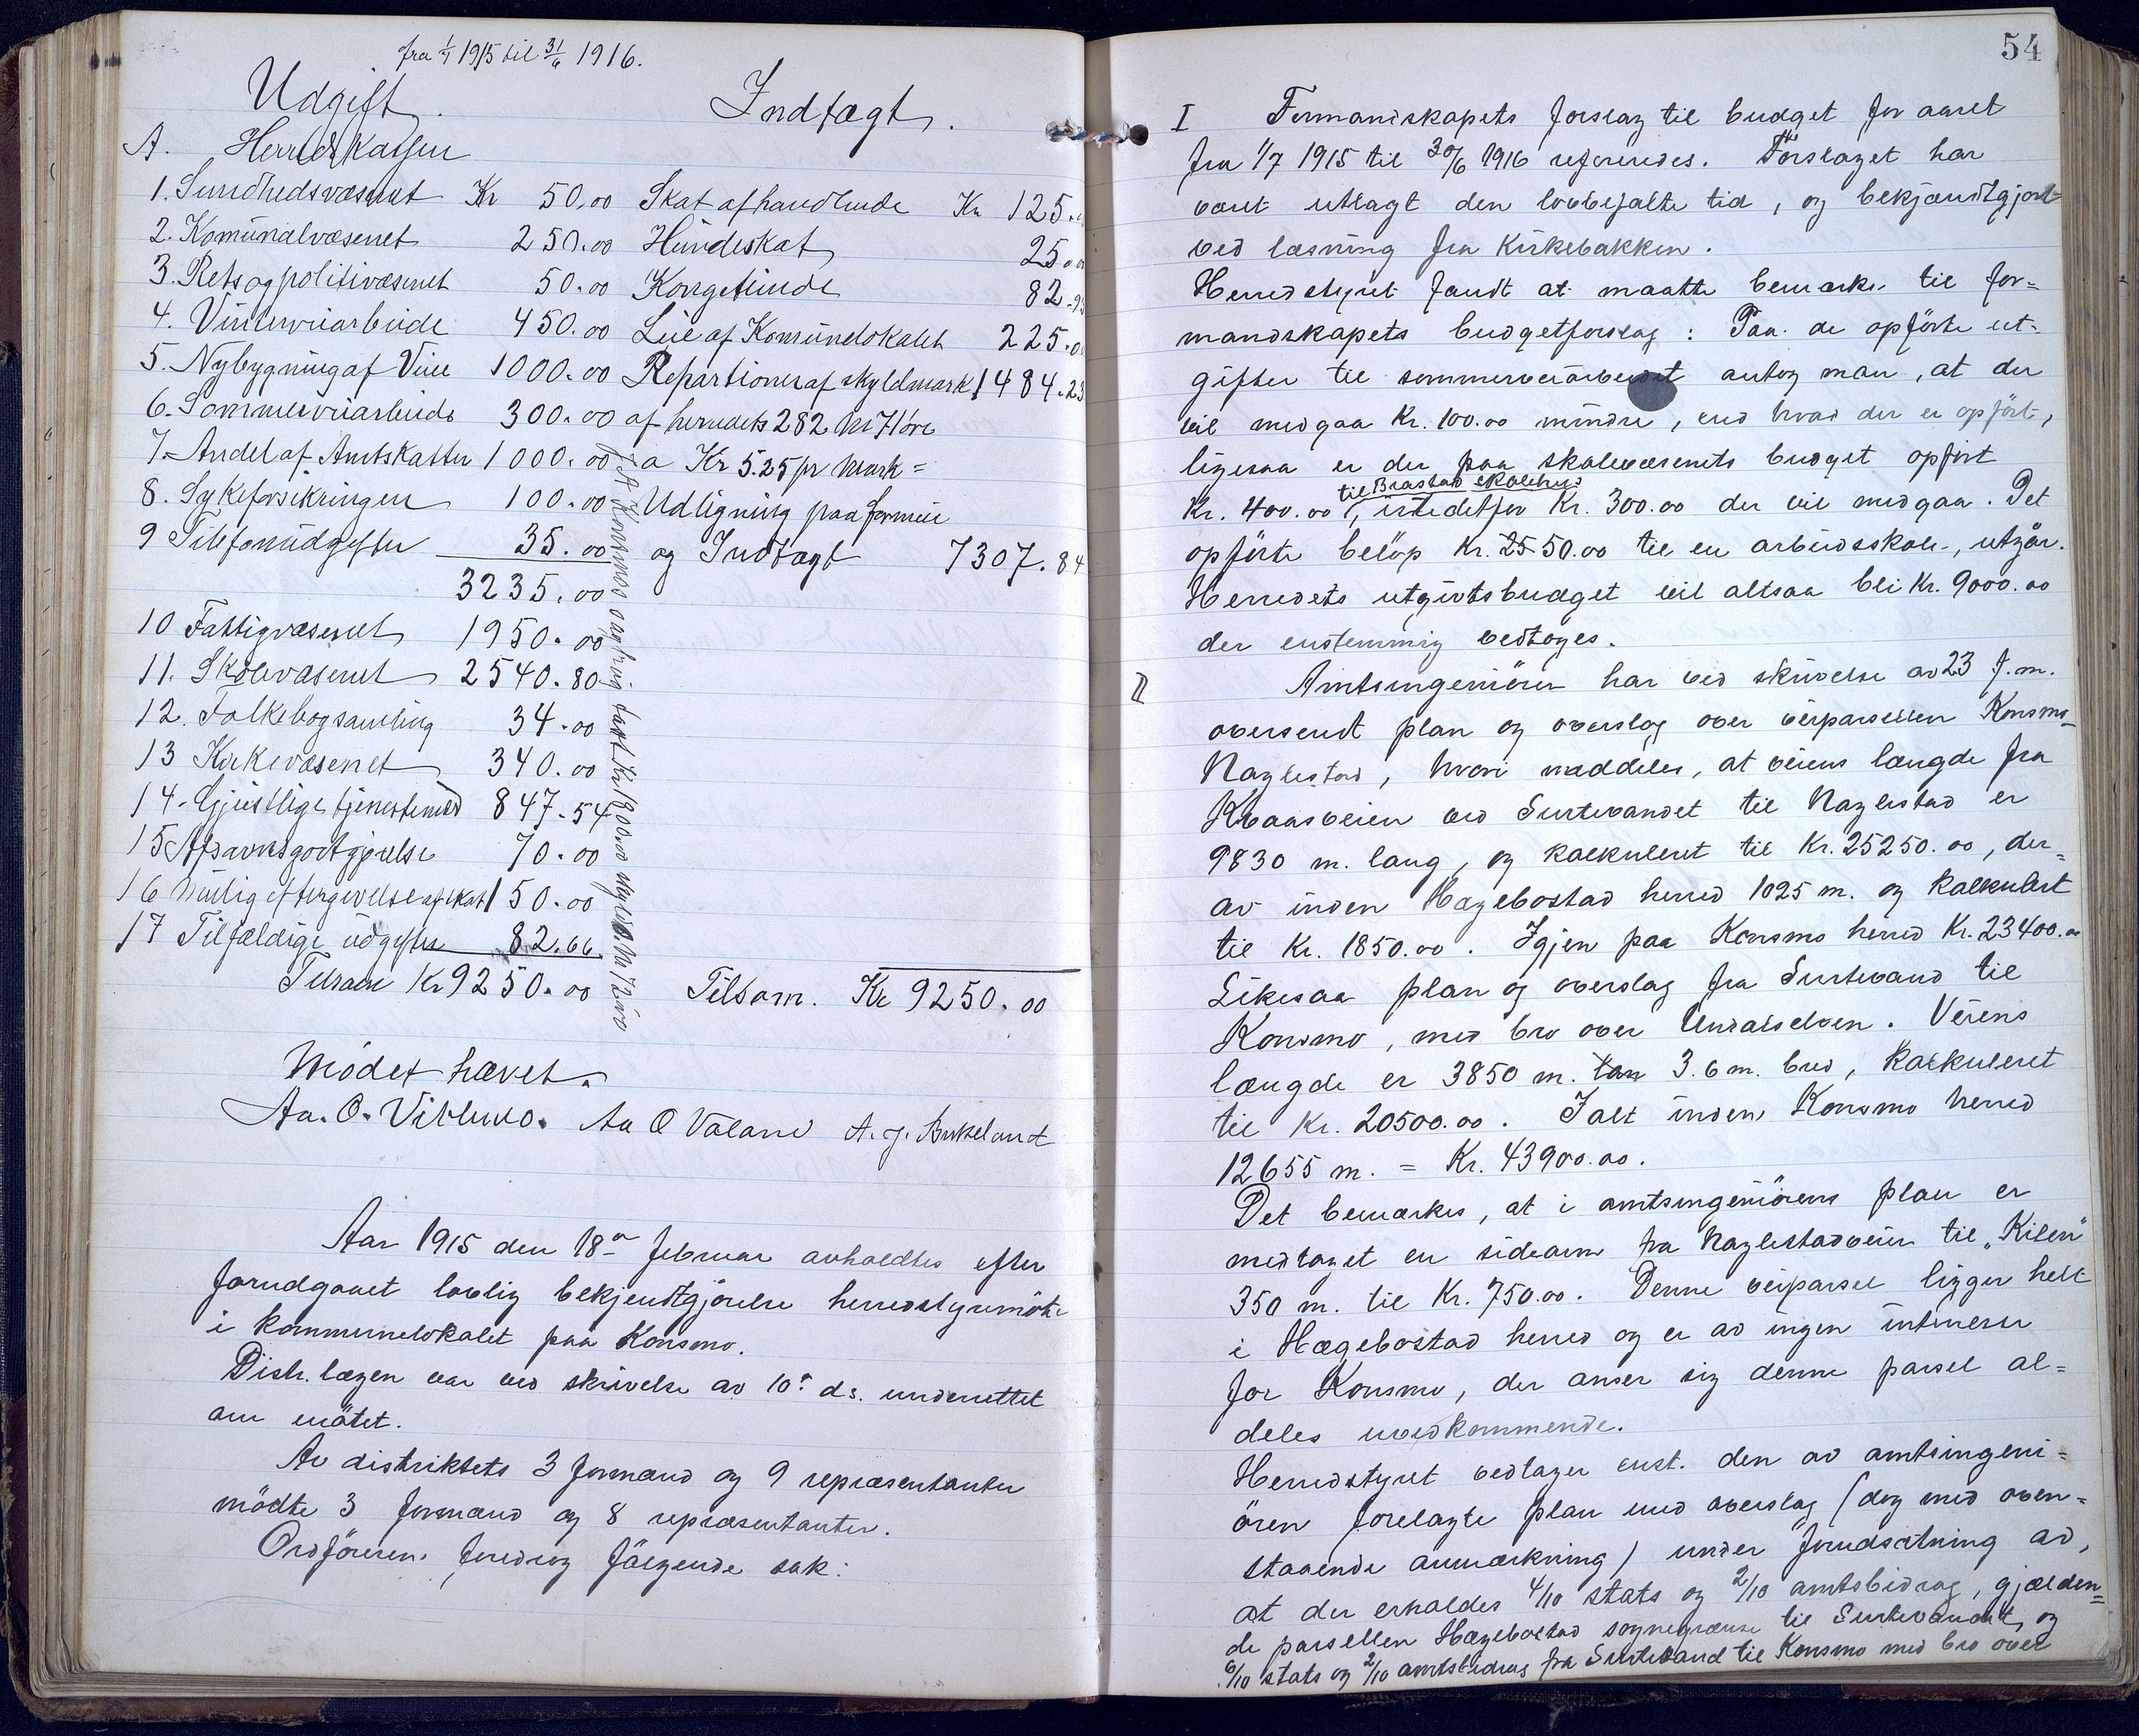 fra 1/7 1915 til 31/6 1916.
Udgift. Indtægt.
A. Herredskassen
1. Sundhedsvæsenet Kr 50,00 Skat af handlende Kr 125.
2. Komunalvæsenet 250.00 Hundeskat 25.0
3. Rets og politivæsenet 50.00 Kongetiende 82.9
4. Vinterveiarbeide 450.00 Leie af Komunelokalet 225.0
5. Nybygning af Veie 1000.00 Repartioner af skyldmark 1484.23
6. Sommerveiarbeide 300.00 af herredets 282 M 71 öre
7. Andel af Amtskatten 1000.00 a Kr 5.25 pr Mark =
8. Sykeforsikringen 100.00 Udligning paa formue
9 Telefonudgifter 35.00 og Indtægt 7307.84
3235.00
10 Fattigvæsenet 1950.00
11. Skolevæsenet 2540.80
12. Folkebogsamling 34.00
13 Kirkevæsenet 340.00
14. Gjeistlige tjenestemænd 847.54
15 Afsavnsgodtgjørelse 70.00
16 Mulig eftergivelse af skat 150.00
17 Tilfældige udgifter 82.66.
Tilsam Kr 9250.00 Tilsam. Kr 9250.00
Mödet hævet.
Aa. O. Aa O Valand A. J. Birkeland
Aar 1915 den 18de februar avholdtes efter
forudgaaet lovlig bekjendtgjörelse herredstyremöte
i kommunelokalet paa Konsmo.
Distr. lægen var ved skrivelse av 10. ds. underrettet
om mötet.
Av distriktets 3 formænd og 9 repræsentanter
mödte 3 formænd og 8 repræsentanter.
Ordföreren foredrog fölgende sak:
54
I Formandskapets forslag til budget for aaret
fra 1/7 1915 til 30/6 1916 refereredes. Forslaget har
været utlagt den lovbefalte tid, og bekjendtgjort
ved læsning fra Kirkebakken.
Herredstyret fandt at maatte bemærke til for=
mandskapets budgetforslag: Paa de opförte ut-
gifter til sommerveiarbeidet antog man, at der
vil medgaa Kr. 100.00 mindre, end hvad der er opfört,
ligesaa er der paa skolevæsenets budget opfört
til Brastad skolehus
Kr. 400.00, istedetfor Kr. 300.00 der vil medgaa. Det
opförte belöp Kr. 25-50.00 til en arbeidsskole, utgår.
Herredets utgivtsbudget vil altsaa bli Kr. 9000.00
der enstemmig vedtoges.
II Amtsingeniören har ved skrivelse av 23 f.m.
oversendt plan og overslag over veiparsellen Konsmo-
Naglestad, hvori meddeles, at veiens længde fra
Kvaasveien ved Surtevandet til Naglestad er
9830 m. lang, og kalkuleret til Kr. 25250.00, der=
av inden Hægebostad herred 1025 m. og kalkulert
til Kr. 1850.00. Igjen paa Konsmo herred Kr. 23400.00
Likesaa plan og overslag fra Surtevand til
Konsmo, med bro over Undalselven. Veiens
længde er 3850 m. 3.6 m. bred, kalkuleret
til Kr. 20500.00. Ialt inden Konsmo herred
12655 m. = Kr. 43900.00.
Det bemærkes, at i amtsingeniörens plan er
medtaget en sidearm fra Naglestadveien til „Kilen"
350 m. til Kr. 750.00. Denne veiparsel ligger helt
i Hægebostad herred og er av ingen interesse
for Konsmo, der anser sig denne parsel al=
deles uvedkommende.
Herredstyret vedtager enst. den av amtsingeni=
ören forelagte plan med overslag (dog med oven=
staaende anmærkning) under forudsætning av,
at der erholdes 4/10 stats og 2/10 amtsbidrag, gjælden=
de parsellen Hægebostad sognegrænse til Surtevandet, og
6/10 stats og 2/10 amtsbidrag fra Surtevand til Konsmo med bro over